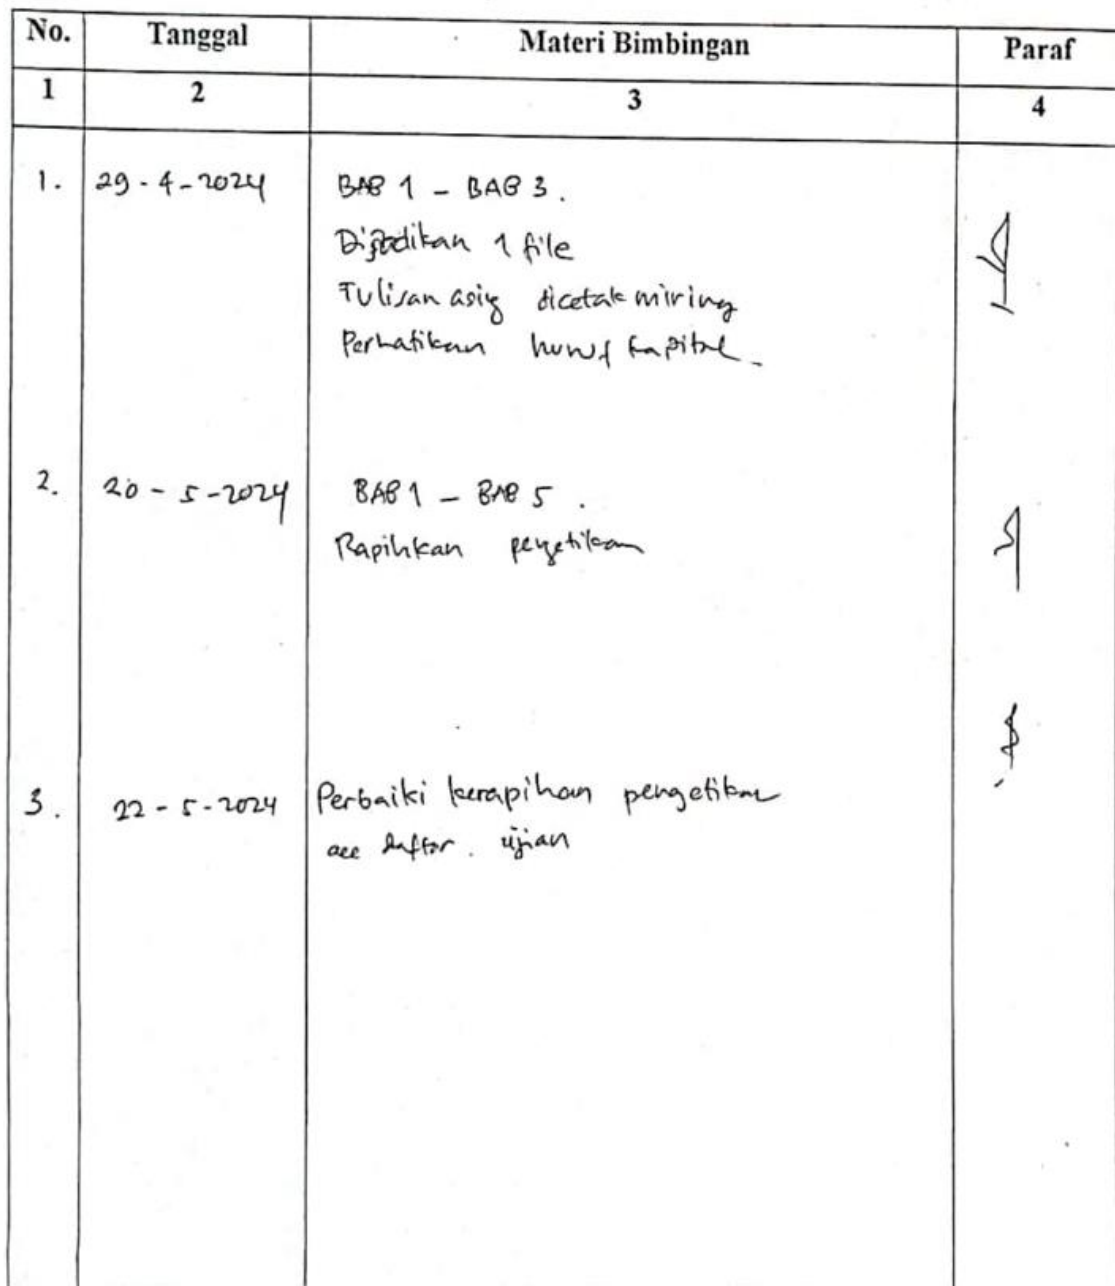 No. Tanggal Materi Bimbingan Paraf
1 2 3 4
1. 29-4-2024 BAB 1 - BAB 3.
Dijadikan 1 file
Tulisan asing dicetak miring
Perhatikan huruf kapital.
2. 20-5-2024 BAB 1 - BAB 5.
Rapihkan pengetikan
3. 22-5-2024 Perbaiki kerapihan pengetikan
acc daftar. ujian